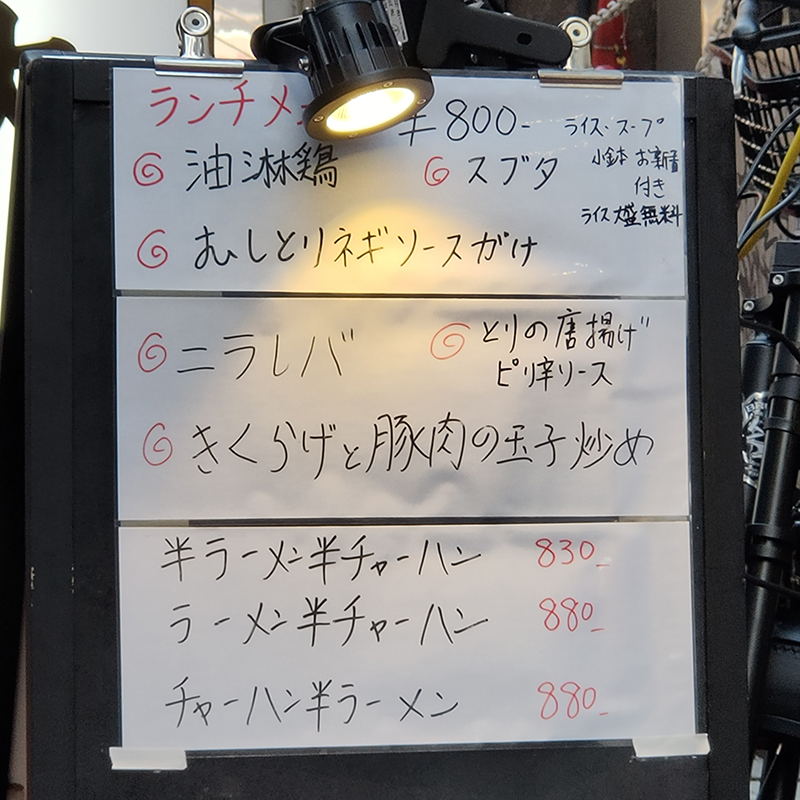 ランチメ ¥800-
ライス・スープ
小鉢 お新香
付き
ライス大盛無料
油淋鶏 スブタ
むしとりネギソースがけ
ニラレバ
とりの唐揚げ
ピリ辛ソース
きくらげと豚肉の玉子炒め
半ラーメン半チャーハン 830-
ラーメン半チャーハン 880-
チャーハン半ラーメン 880-